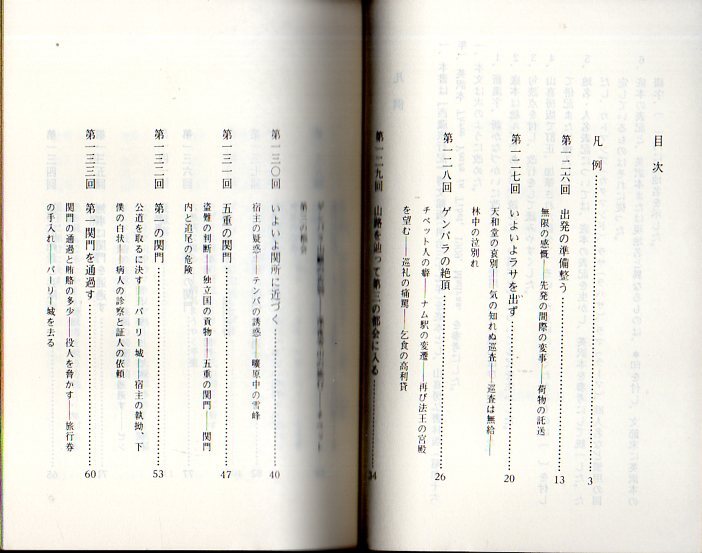 目次
凡例 3
第一二六回 出発の準備整う 13
無限の感慨——先発の間際の変事——荷物の託送
第一二七回 いよいよラサを出ず 20
天和堂の哀別——気の知れぬ巡査——巡査は無給——
林中の泣別れ
第一二八回 ゲンパラの絶頂 26
チベット人の癖——ナム駅の変遷——再び法王の宮殿
を望む——巡礼の痛罵——乞食の高利貸
第一二九回 山路を辿って第三の都会に入る 34
第一三〇回 いよいよ関所に近づく 40
宿主の疑惑——テンバの誘惑——曠原中の雪峰
第一三一回 五重の関門 47
盗難の判断——独立国の貢物——五重の関門——関門
内と追尾の危険
第一三二回 第一の関門 53
公道を取るに決す——パーリー城——宿主の執拗、下
僕の白状——病人の診察と証人の依頼
第一三三回 第一関門を通過す 60
関門の通過と賄賂の多少——役人を脅かす——旅行券
の手入れ——パーリー城を去る